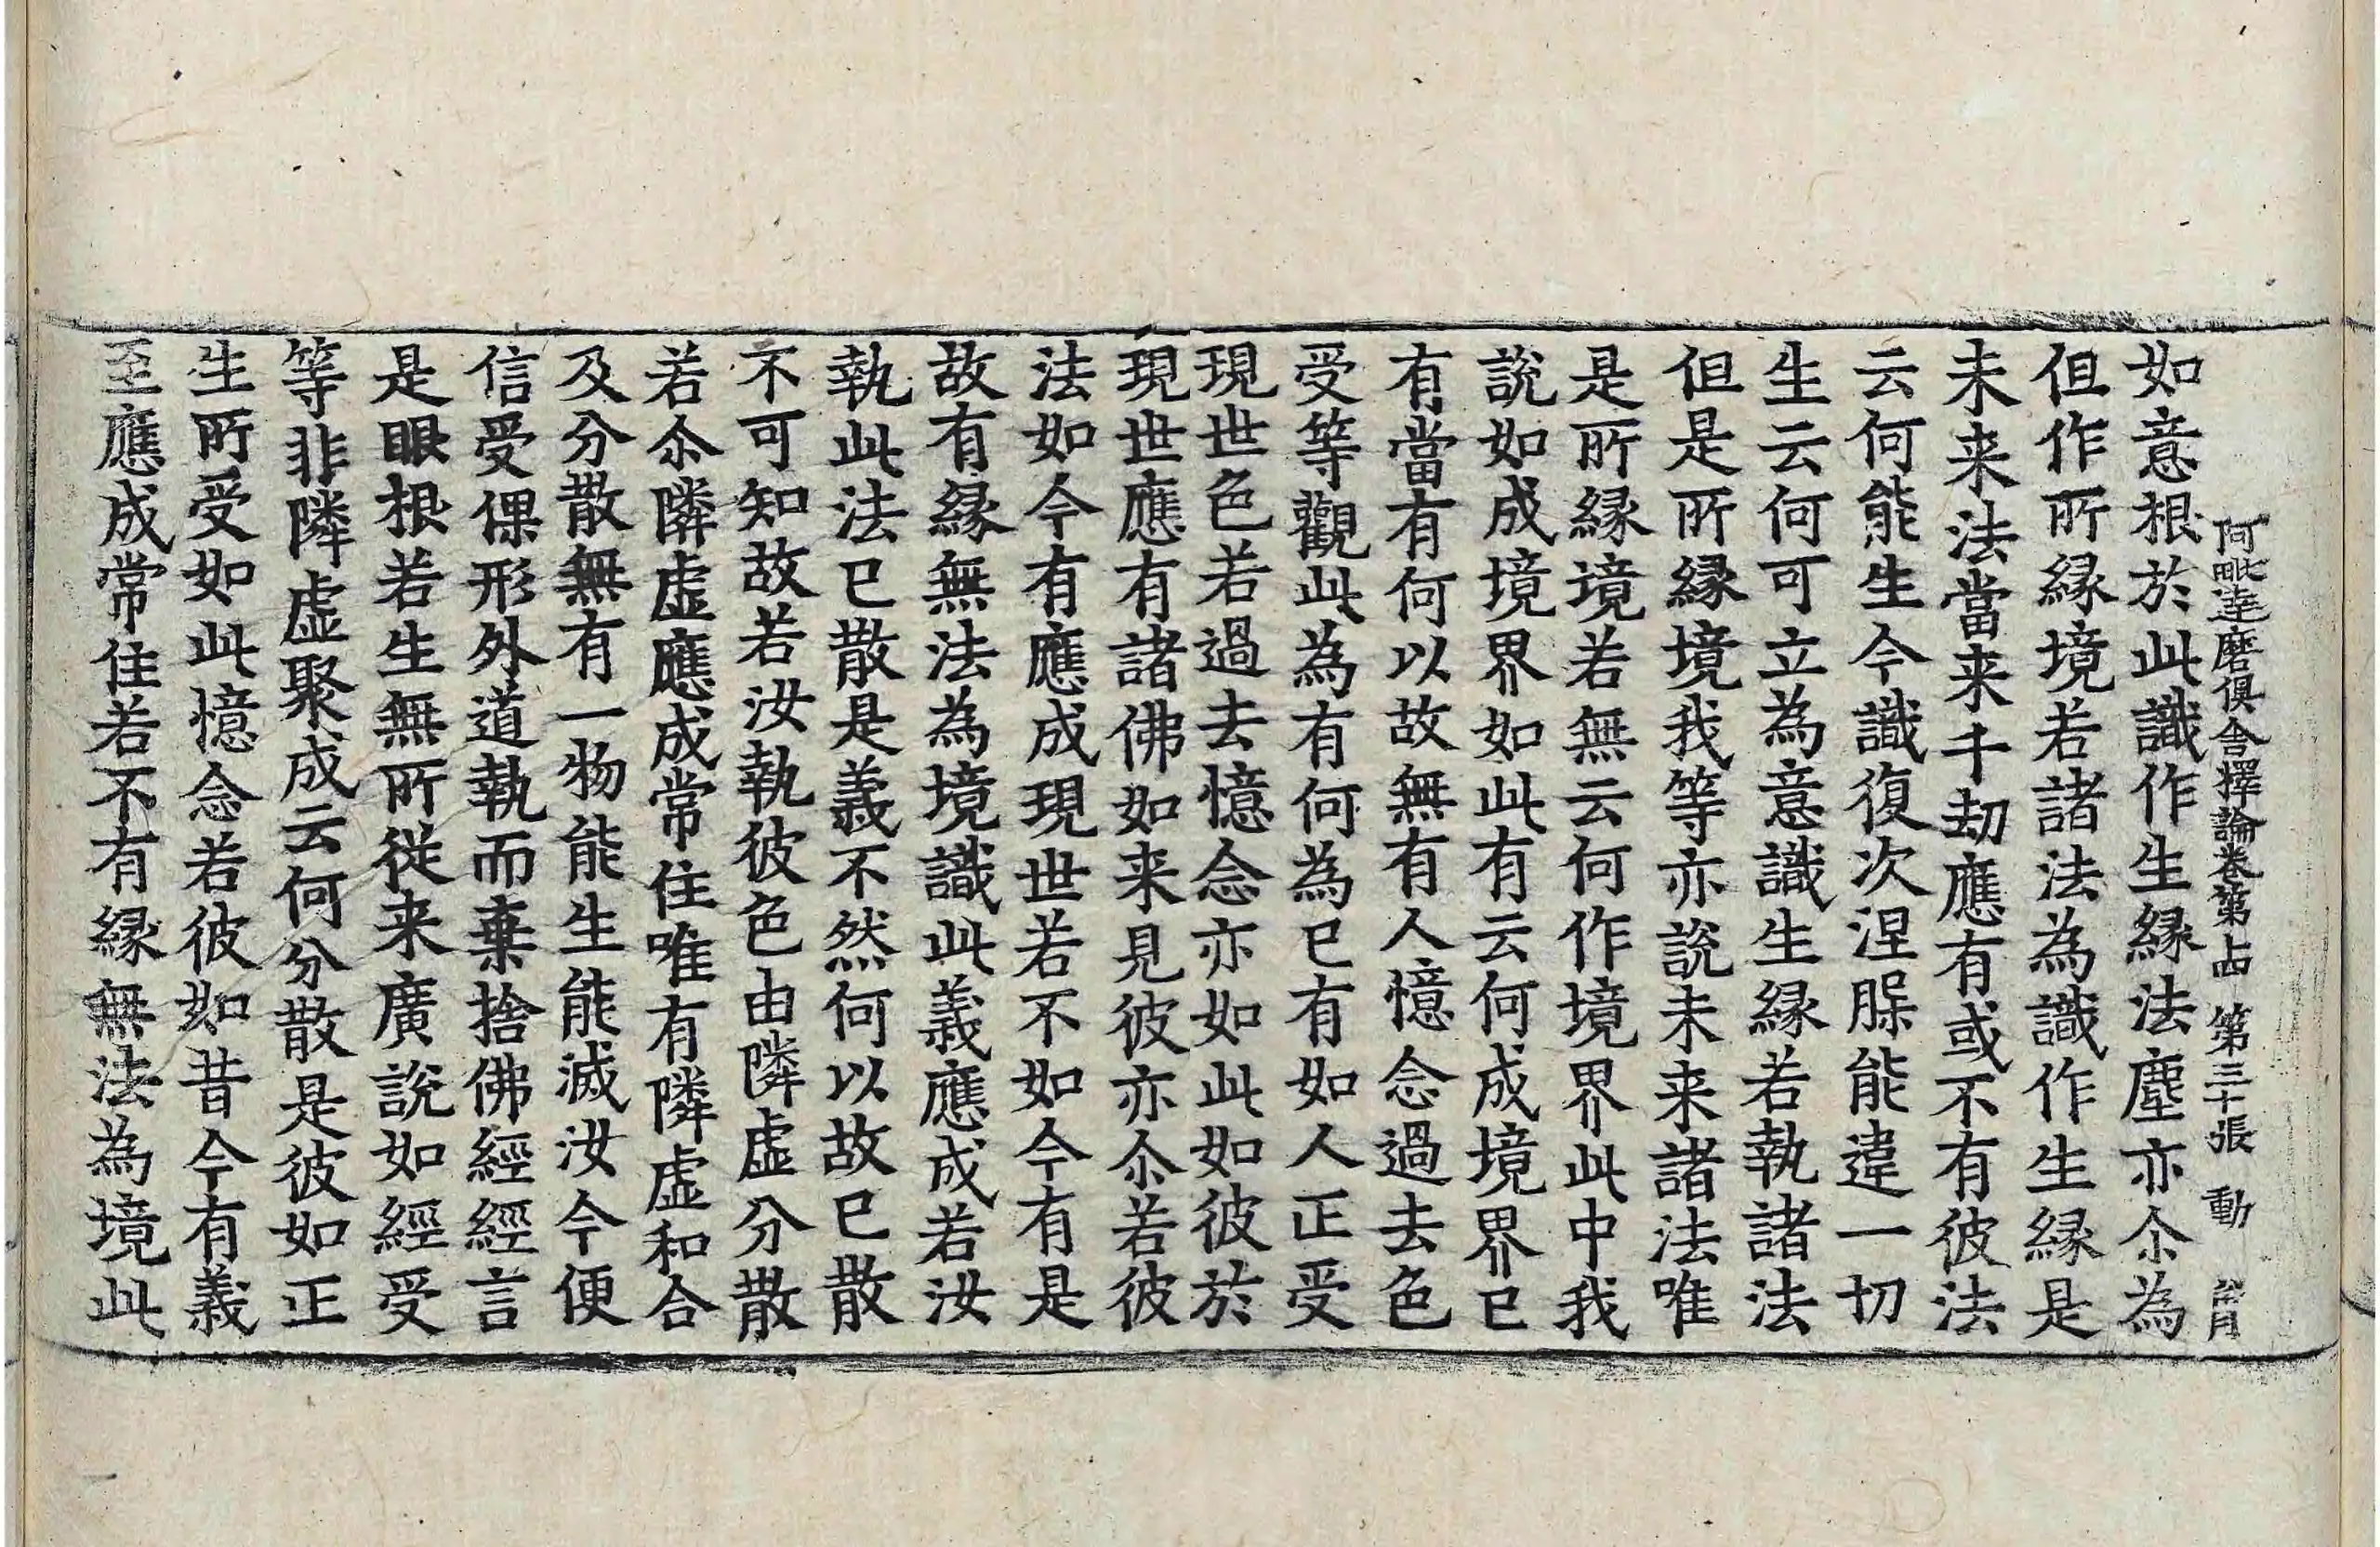 阿毗達磨俱舍釋論卷第十四 第三十張 動
如意根於此識作生縁法塵亦尒為
但作所縁境若諸法為識作生縁是
未来法當来千劫應有或不有彼法
云何能生今識復次涅脵能違一切
生云何可立為意識生縁若執諸法
但是所縁境我等亦說未来諸法唯
是所縁境若無云何作境界此中我
說如成境界如此有云何成境界已
有當有何以故無有人憶念過去色
受等觀此為有何為已有如人正受
現世色若過去憶念亦如此如彼於
現世應有諸佛如来見彼亦尒若彼
法如今有應成現世若不如今有是
故有縁無法為境識此義應成若汝
執此法已散是義不然何以故已散
不可知故若汝執彼色由隣虛分散
若尒隣虛應成常住唯有隣虛和合
及分散無有一物能生能滅汝今便
信受倮形外道執而棄捨佛經經言
是眼根若生無所從来廣說如經受
等非隣虛聚成云何分散是彼如正
生所受如此憶念若彼如昔今有義
至應成常住若不有縁無法為境此